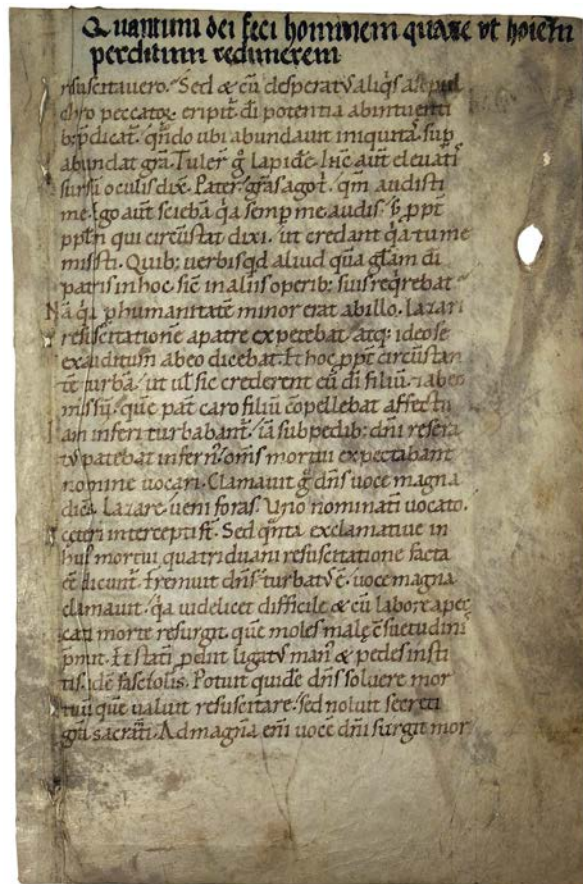 Quantum dei feci hominem quare ut hoiem
perditum redimerem
resuscitavero. Sed & cū desperatꝰ aliqͥs a sepul
chro peccatoꝝ eripit᷑ di potentia ab intuenti
bꝫ p̄dicat᷑. qn̄do ubi abundauit iniquitas sup
abundat gr̄a. Tuler̄ g̊ lapidē. Ihc̄ aut̄ eleuatis
sursū oculis dix̄. Pater gr̄as ago t̄. qm̄ audisti
me. Ego aut̄ sciebā qͥa semp me audis. ppt̄
ppl̄m qui circūstat dixi. ut credant qͥa tu me
misisti. Quibꝫ uerbis qͥd aliud quā gl̄am di
patris in hoc. sic̄ in aliis operibꝫ suis reqͥrebat
Nā qͥa p humanitatē minor erat ab illo. Lazari
resuscitationē a patre expetebat. atqꝫ ideo se
exauditum ab eo dicebat. Et hoc ppt̄ circūstan
tē turbā. ut ul̄ sic crederent eū di filiū. & ab eo
missū. quē pat̄ caro filiū cōpellebat affectu
Iam inferi turbabant᷑. iā sub pedibꝫ dn̄i resera
tꝰ patebat infernꝰ. oms̄ mortui expectabant
nomine uocari. Clamauit g̊ dn̄s uoce magna
dicē. Lazare ueni foras. Uno nominati uocato.
ceteri intercepti st̄. Sed qn̄ta exclamatiue in
huiꝰ mortui quatriduani resuscitatione facta
eē dicunt᷑. Fremuit dn̄s. turbatꝰ ē. uoce magna
clamauit. qͥa uidelicet difficile & cū labore a pec
cati morte resurgit. quē moles malę c̄suetudinis
p̄mit. Et statī pdiit ligatꝰ manꝰ & pedes insti
tis. idē fasciolis. Potuit quidē dn̄s soluere mor
tuū quē ualuit resuscitare. sed noluit secreti
gr̄a sacram̄ti. Ad magnā eni uocē dn̄i surgit mor